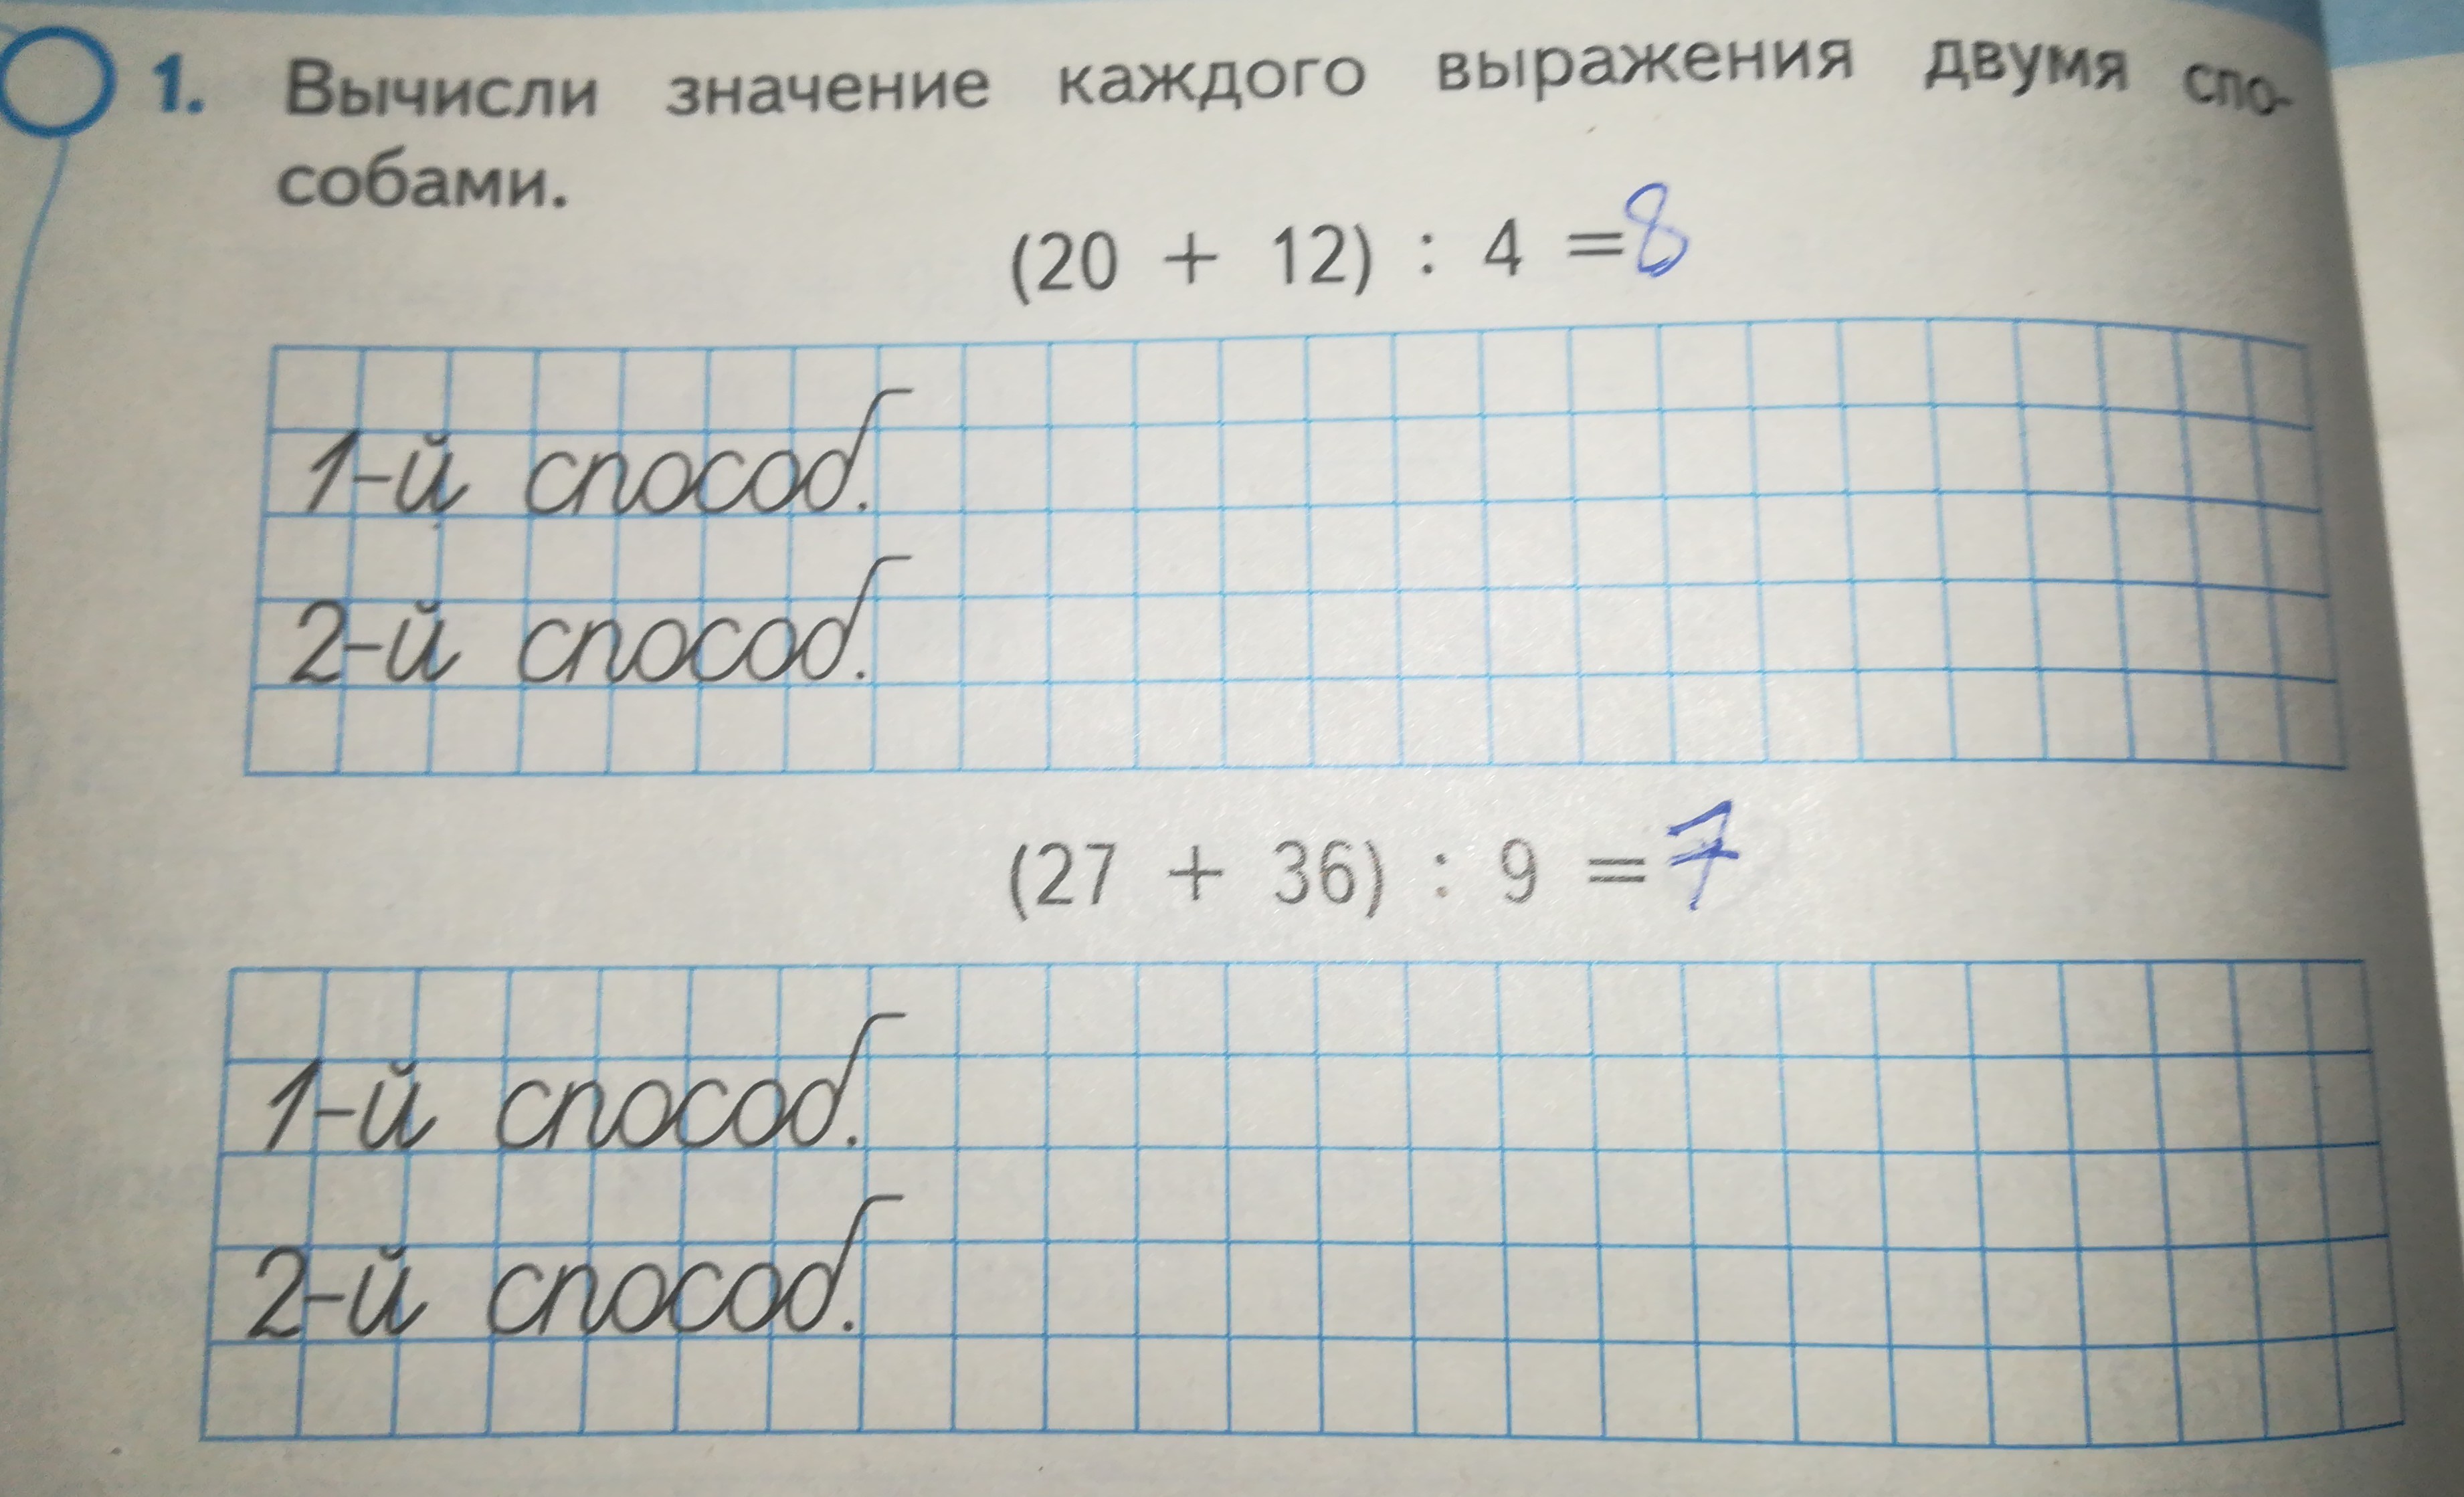 1. Вычисли значение каждого выражения двумя спо-
собами.
(20 + 12) : 4 =8
1-й способ.
2-й способ.
(27 + 36) : 9 =7
1-й способ.
2-й способ.